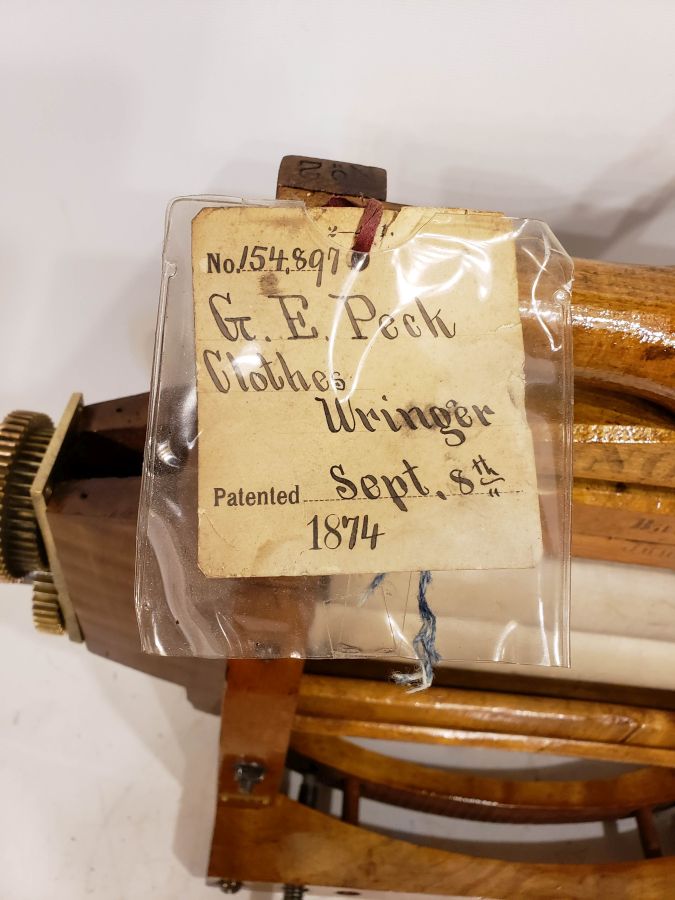 No. 154,897
G. E. Peck
Clothes
Wringer
Patented Sept. 8th
1874